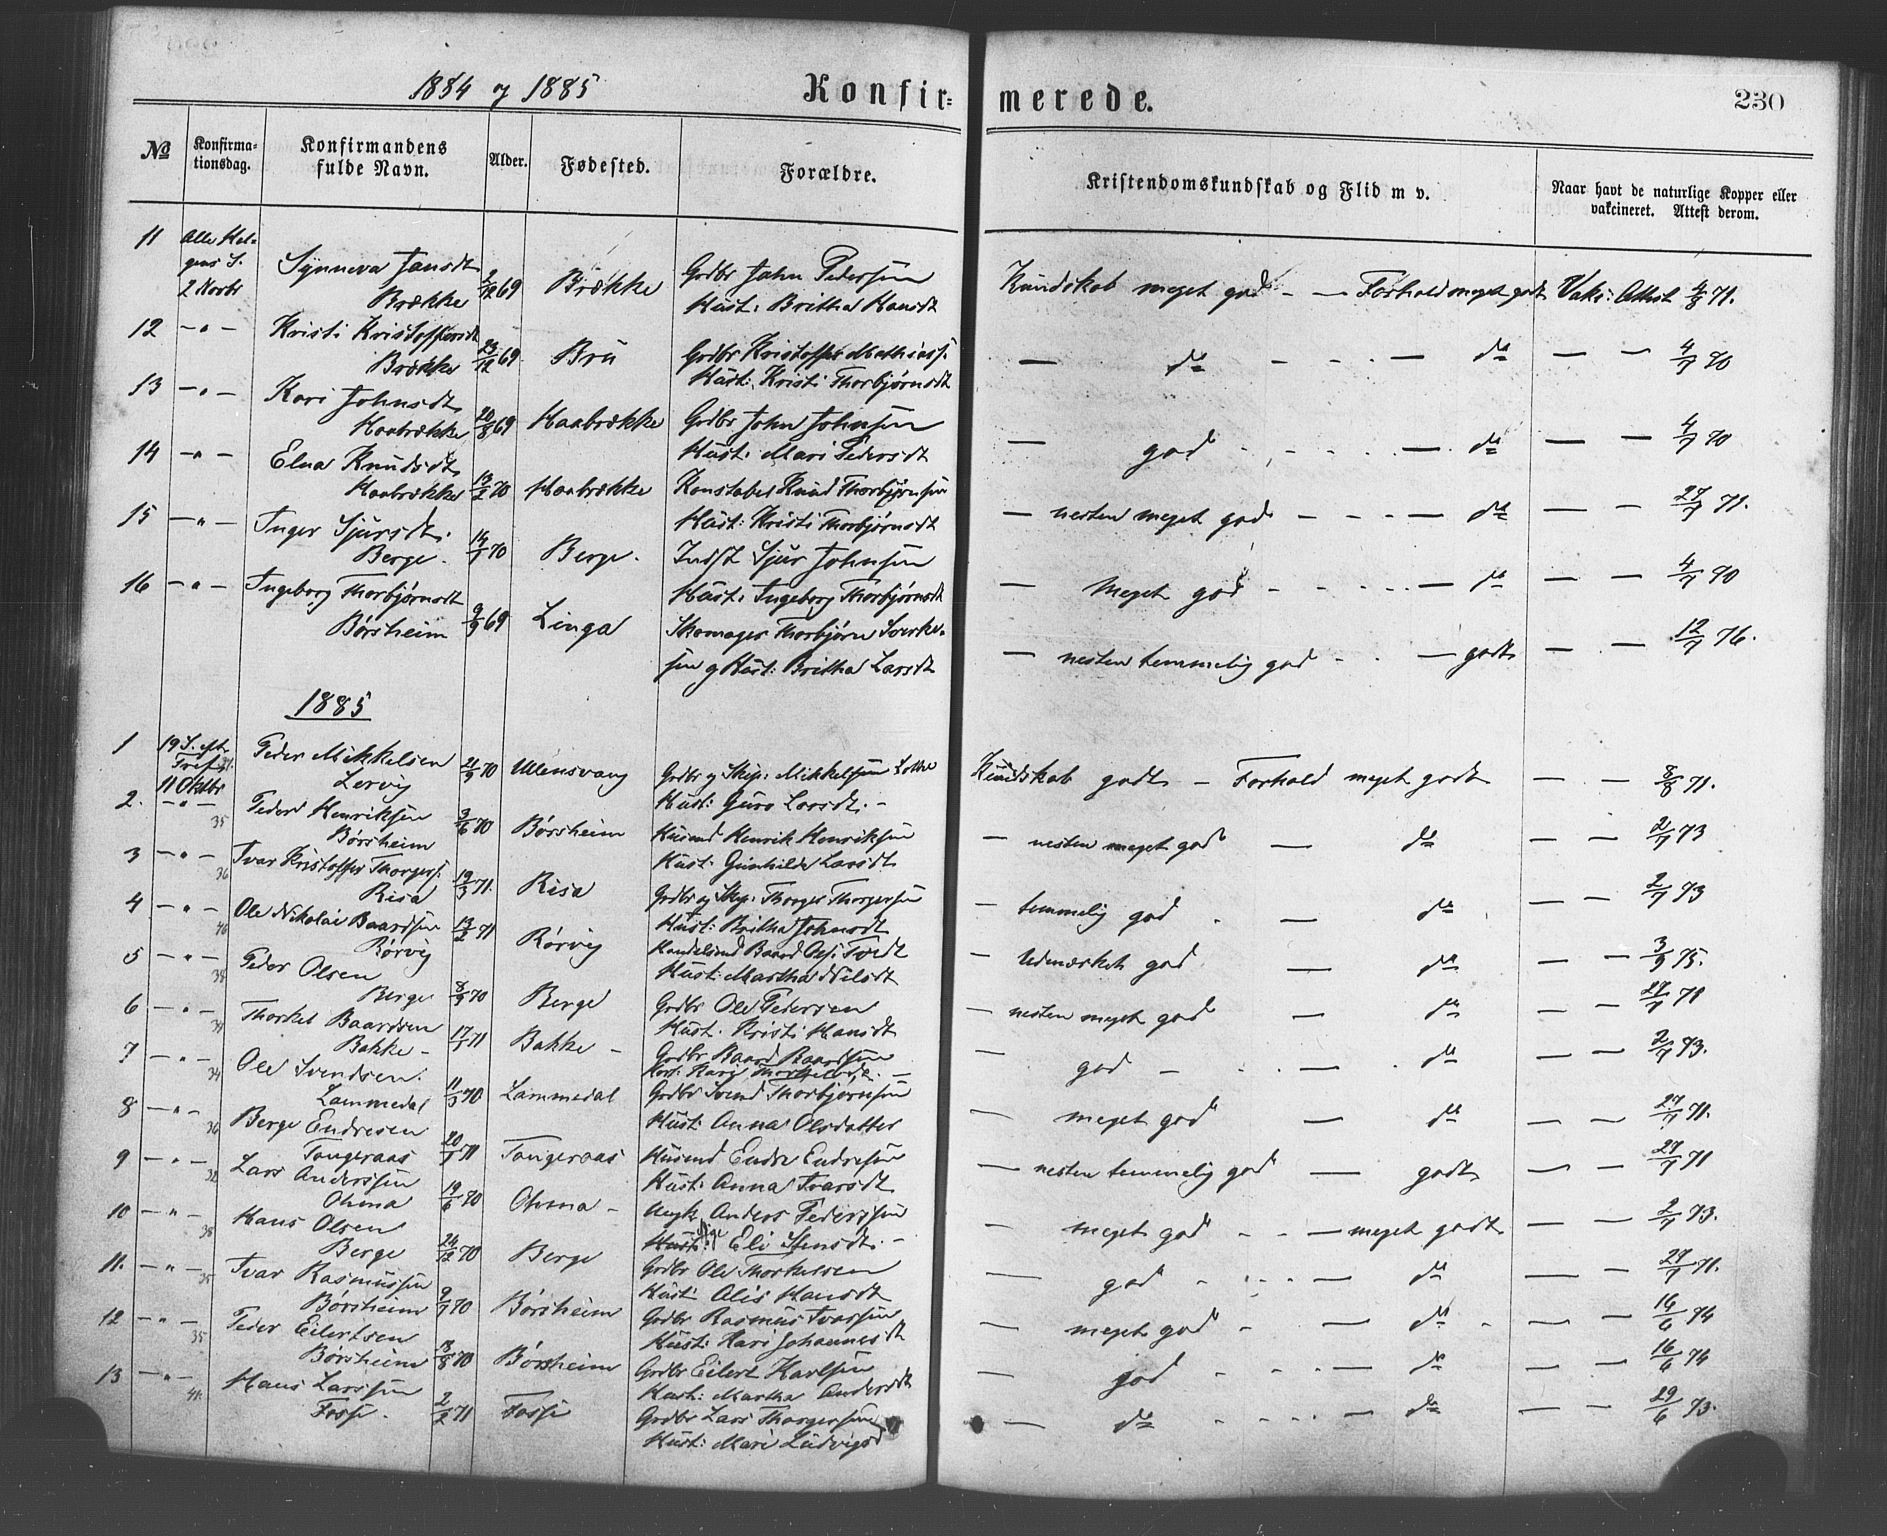 1884 og 1885 Konfir- merede. 230
No Konfirmationsdag. Konfirmandens fulde Navn. Alder. Fødested. Forældre. Kristendomskundskab og Flid m v. Naar havt de naturlige Kopper eller vakcineret. Attest derom.
11 Alle Helgens S. 2 Novbr Synneva Jansdt Brække 2/12 69 Brække Grdbr Jahn Pedersen
Hust: Britha Hansdt Kundskab meget god - — Forhold meget godt Vaks: Attest 4/8 71.
12 — " — Kristi Kristoffersdt Brække 23/12 69 Bru Grdbr Kristoffer Mathiass.
Hust: Kristi Thorbjørnsdt — do - - — do — — 4/7 70
13 — " — Kari Johnsdt Haabrække 20/8 69 Haabrække Grdbr John Johnsen
Hust: Mari Pedersdt — god - - - — do — — 4/7 70
14 — " — Elna Knudsdt Haabrække 13/2 70 Haabrække Konstabel Knud Thorbjørnsen
Hust: Kristi Thorbjørnsdt — nesten meget god - - - — do — — 27/7 71.
15 — " — Inger Sjursdt. Berge. 14/7 70 Berge. Indst Sjur Johnsen
Hust: Ingeborg Thorbjørnsdt — Meget god - - - — do — — 4/7 70
16 — " — Ingeborg Thorbjørnsdt Børsheim 9/9 69 Linga Skomager Thorbjørn Sverke-
sen og Hust: Britha Larsdt — nesten temmelig god - - — godt — — 12/7 76.
1885
1 19 S. eft. Tref. 11 Oktbr Peder Mikkelsen Lervig 21/9 70 Ullensvang Grdbr og Skip: Mikkelsen
Hust: Guro Larsdt. - Kundskab godt - Forhold meget godt — — 8/8 71.
2. — " — 35 Peder Henriksen Børsheim 3/6 70 Børsheim Husmd Henrik Henriksen
Hust: Gunhilde Larsdt — nesten meget god — do — — 2/7 73
3 — " — 36 Ivar Kristoffer Thorgers. Risa 19/3 71. Risa Grdbr og Skip: Thorger Thorgersen
Hust: Britha Johnsdt — temmelig god - — do — — 2/7 73
4 — " — 40 Ole Nikolai Baardsen Rørvig 13/2 71 Rørvig Handelsmd Baard Tvedt
Hust: Martha Nilsdt — Udmærket god — do — — 3/9 75.
5 — " — 38 Peder Olsen Berge 8/9 70 Berge Grdbr Ole Pedersen
Hust. Kristi Hansdt — nesten meget god — do — 27/7 71
6 — " — 34 Thorkel Baardsen Bakke - 17/1 71 Bakke - Grdbr Baard Baardsen
Hust: Kari Thorkelsdt. — — god - - - — do — — 2/7 73.
7 — " — 34 Ole Svendsen. Lammedal 11/3 70 Lammedal Grdbr Svend Thorbjørnsen
Hust: Anna Olsdatter — meget god — do — — 27/7 71.
8 — " — 36 Berge Endresen Tangeraas 20/1 71 Tangeraas Husmd Endre Endresen
Hust: Anna Ivarsdt — nesten temmelig god — godt — — 27/7 71
9 — " — 32 Lars Anderssen Ohma 19/6 70 Ohma - Ungk. Anders Pederssen
Pige Eli Stensdt. - — meget god - - — meget godt — — 2/7 73.
10 — " — 38 Hans Olsen Berge 24/12 70 Berge Grdbr Ole Thorkelsen
Hust: Alis Hansdt — god - - — do — — 27/7 71.
11. — " — 35 Ivar Rasmussen Børsheim 9/7 70 Børsheim Grdbr Rasmus Ivarssen
Hust: Kari Johannesdt — meget god - - do - — — 14/6 74
12 — " — 35 Peder Eilertsen Børsheim 18/8 70 Børsheim Grdbr Eilert Karlsen
Hust: Martha Andersdt — god - - — do — — 16/6 74
13 — " — 41. Hans Larssen Fosse. 2/2 71 Fosse Grdbr Lars Thorgersen
Hust: Mari Ludvigsd — do - - - — do — — 29/6 73.